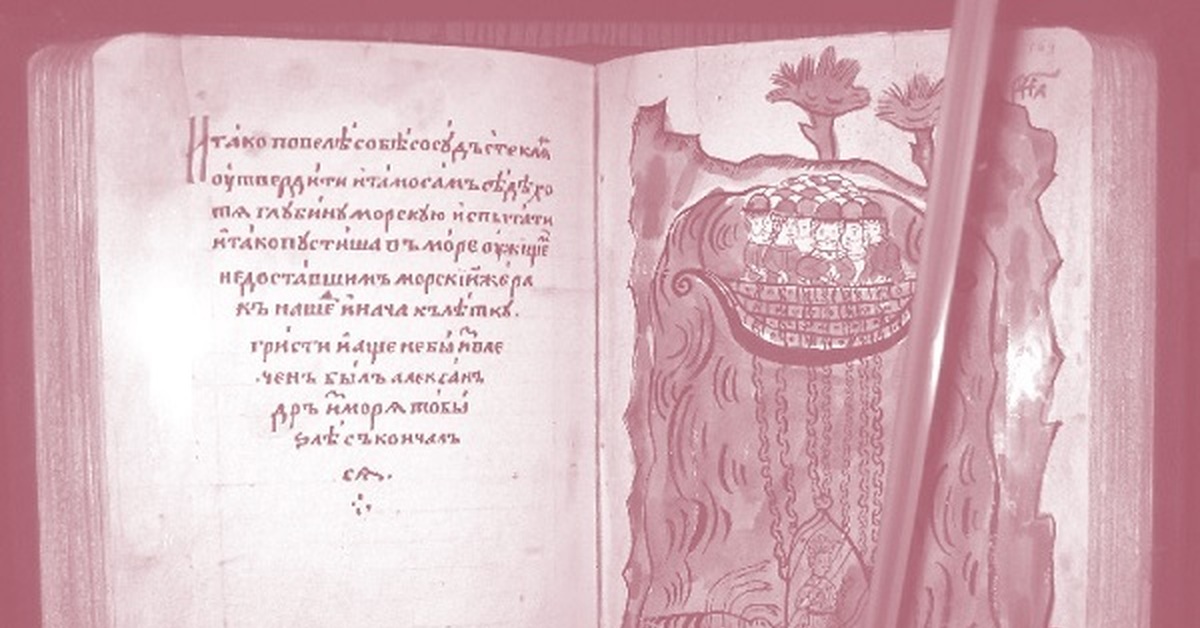 И тако повелѣ собѣ сосудъ стекля
оутвердити и тамо самъ сѣдѣ хо
тя глубину морскую испытати
и тако пустиша въ море оужище
недоставшимъ морскій жера
къ наше инача къ лѣтку.
гристи и аще не бы извле
ченъ былъ алексан
дръ из моря то бы
ѕлѣ съкончалъ
ся.